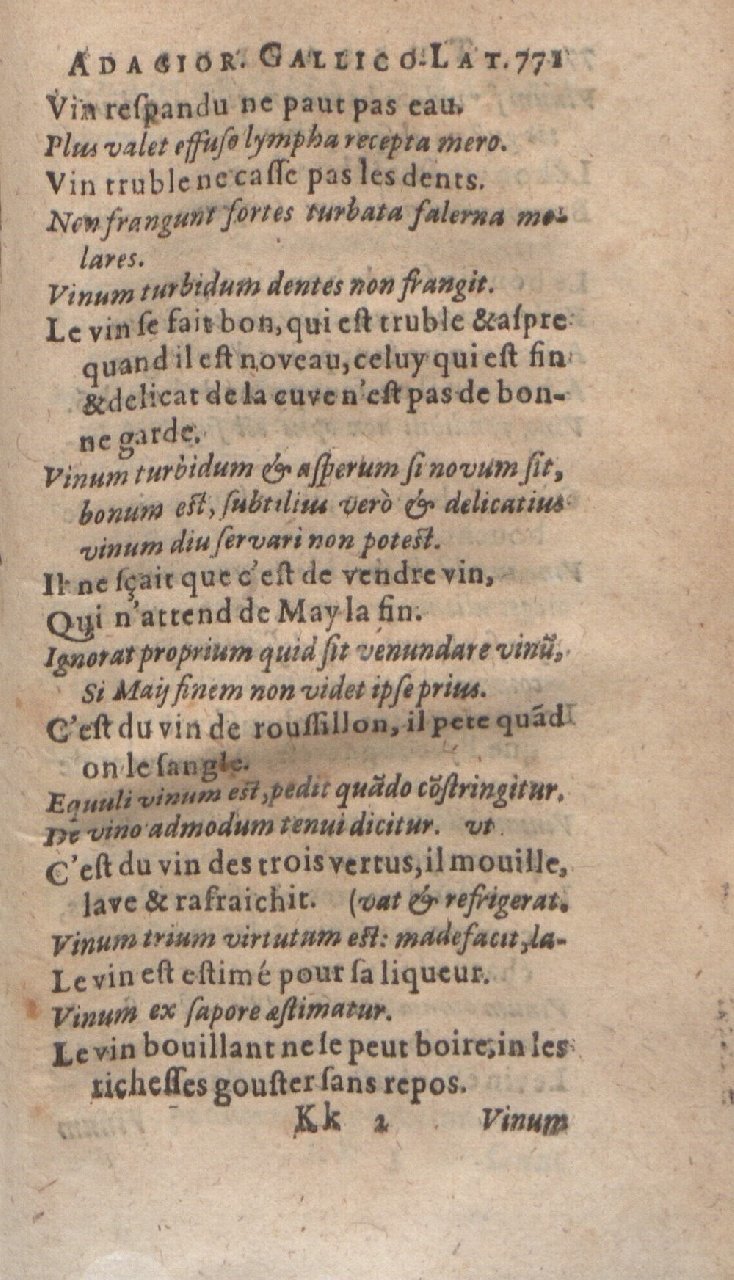 ADAGIOR. GALLICO-LAT. 771
Vin respandu ne paut pas eau.
Plus valet effuso lympha recepta mero.
Vin truble ne casse pas les dents.
Non frangunt fortes turbata falerna mo-
lares.
Vinum turbidum dentes non frangit.
Le vin se fait bon, qui est truble & aspre
quand il est noveau, celuy qui est fin
& delicat de la cuve n'est pas de bon-
ne garde.
Vinum turbidum & asperum si novum sit,
bonum est, subtilius verò & delicatius
vinum diu servari non potest.
Il ne sçait que c'est de vendre vin,
Qui n'attend de May la fin.
Ignorat proprium quid sit venundare vinũ,
Si Maij finem non videt ipse prius.
C'est du vin de roussillon, il pete quãd
on le sangle.
Equuli vinum est, pedit quãdo cõstringitur.
De vino admodum tenui dicitur. vt
C'est du vin des trois vertus, il mouille,
lave & rafraichit. (vat & refrigerat.
Vinum trium virtutum est: madefacit, la-
Le vin est estimé pour sa liqueur.
Vinum ex sapore æstimatur.
Le vin bouillant ne se peut boire, in les
richesses gouster sans repos.
Kk 2 Vinum